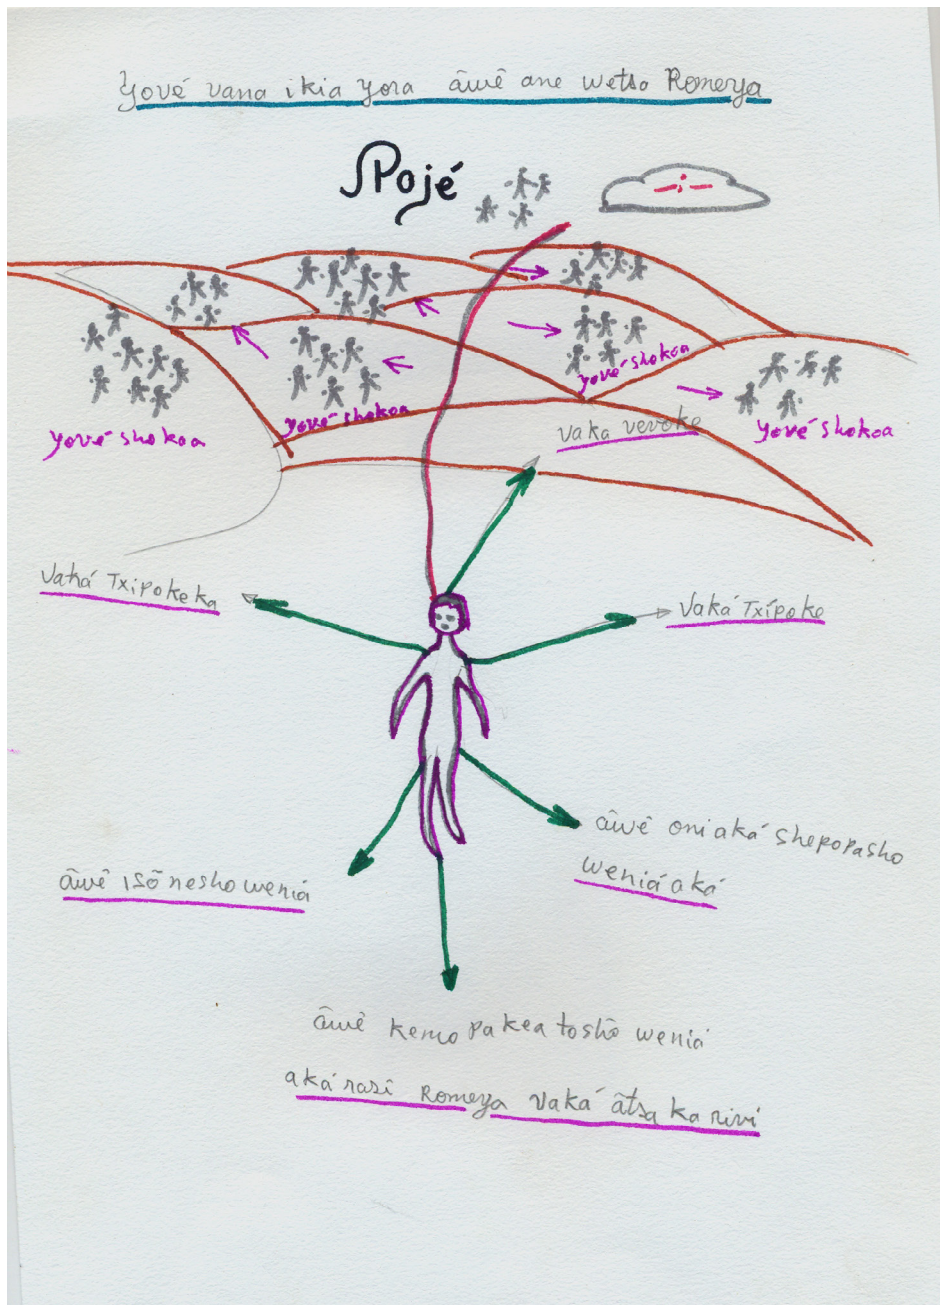 Yové vana ikia yora âwê ane wetsa Romeya
Pajé
yové shokoa
yové shokoa
yové shokoa
yové shokoa
vaka vevoke
vaká Txipokeka
vaká Txípoke
âwê oniaká shepopasho
weniá aká
âwê isõ nesho weniá
âwê kemo pakea toshõ weniá
aká rasî Romeya vaká âtsa ka riví